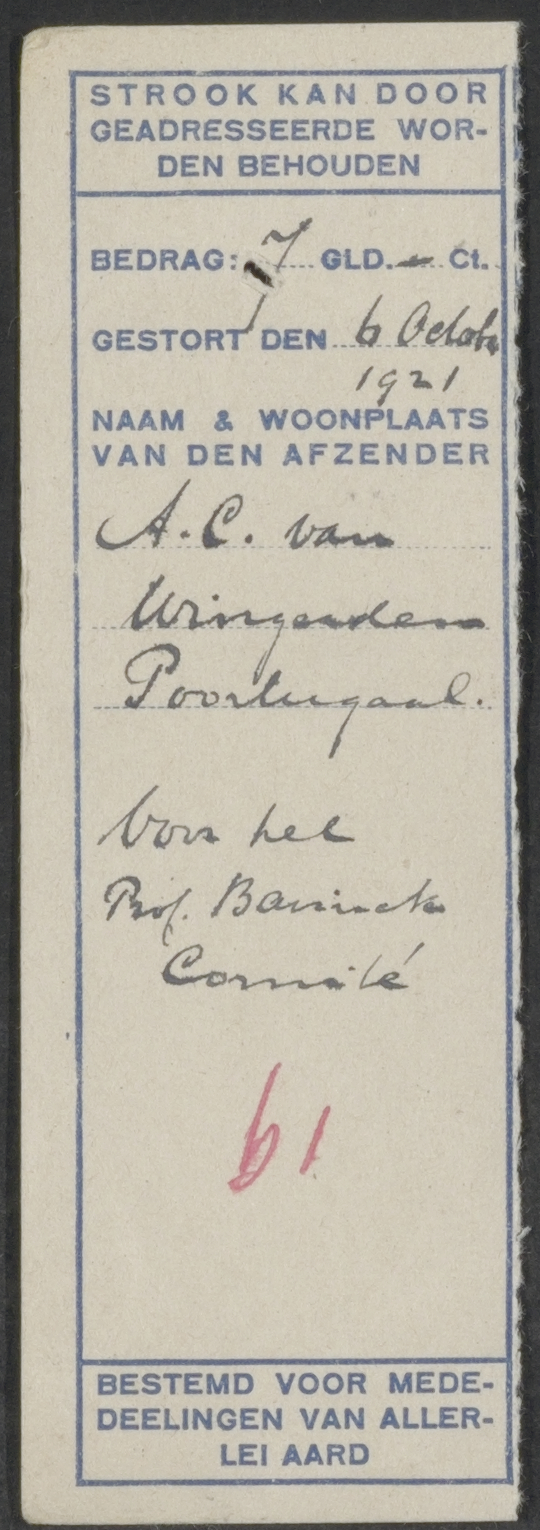 STROOK KAN DOOR
GEADRESSEERDE WOR-
DEN BEHOUDEN
BEDRAG: 7 GLD. - Ct.
GESTORT DEN 6 Octobr
1921
NAAM & WOONPLAATS
VAN DEN AFZENDER
A. C. van
Wingerden
Poortugaal.
Voor het
Prof. Bavinck
Comité
61
BESTEMD VOOR MEDE-
DEELINGEN VAN ALLER-
LEI AARD